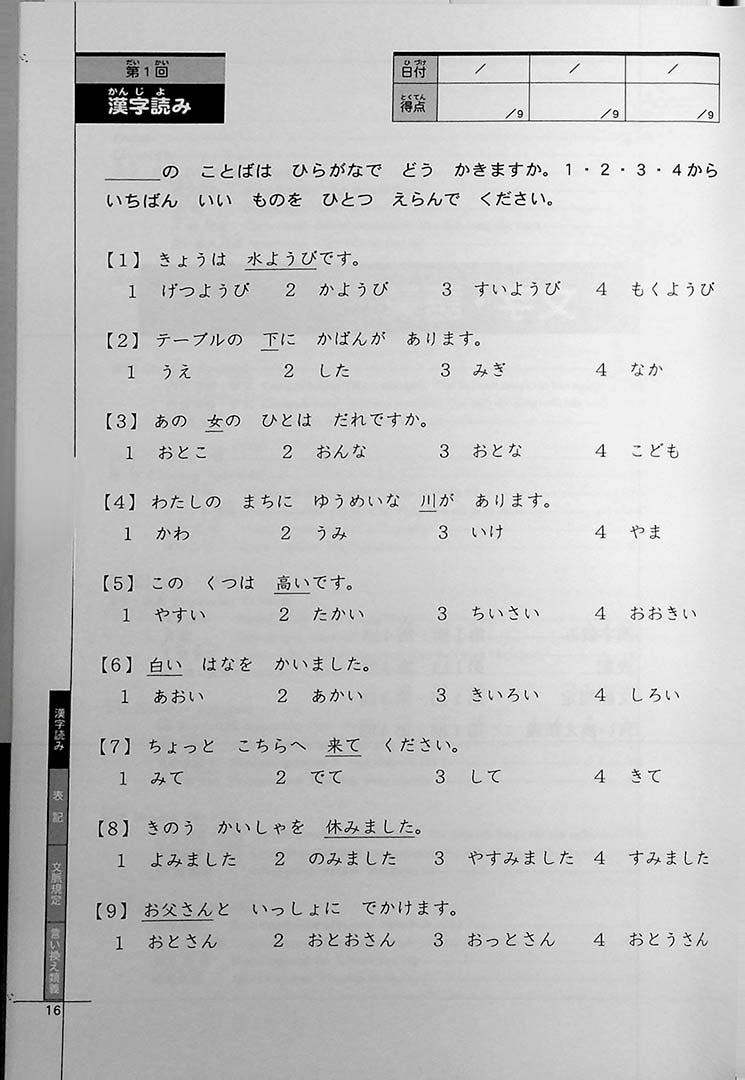 だい かい
第1回
かん じ よ
漢字読み
ひ づけ
日付 / / /
とくてん
得点 /9 /9 /9
______の ことばは ひらがなで どう かきますか。1・2・3・4から
いちばん いい ものを ひとつ えらんで ください。
【1】きょうは 水ようびです。
1 げつようび 2 かようび 3 すいようび 4 もくようび
【2】テーブルの 下に かばんが あります。
1 うえ 2 した 3 みぎ 4 なか
【3】あの 女の ひとは だれですか。
1 おとこ 2 おんな 3 おとな 4 こども
【4】わたしの まちに ゆうめいな 川が あります。
1 かわ 2 うみ 3 いけ 4 やま
【5】この くつは 高いです。
1 やすい 2 たかい 3 ちいさい 4 おおきい
【6】白い はなを かいました。
1 あおい 2 あかい 3 きいろい 4 しろい
【7】ちょっと こちらへ 来て ください。
1 みて 2 でて 3 して 4 きて
【8】きのう かいしゃを 休みました。
1 よみました 2 のみました 3 やすみました 4 すみました
【9】お父さんと いっしょに でかけます。
1 おとさん 2 おとおさん 3 おっとさん 4 おとうさん
漢字読み
表記
文脈規定
言い換え類義
16